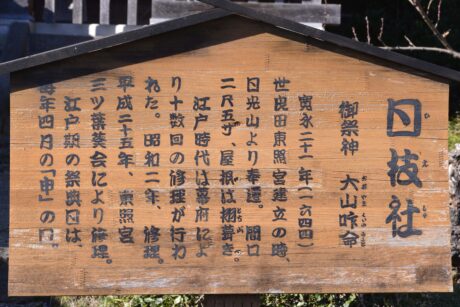 日枝社
ひえしゃ
御祭神 大山咋命
おおやまくいのみこと
寛永二十一年(一六四四)
世良田東照宮建立の時、
日光山より奉遷。間口
二尺五寸、屋根は栩葺き。
とちぶ
江戸時代は幕府によ
り十数回の修理が行わ
れた。昭和二年、修理。
平成二十五年、東照宮
三ツ葉葵会により修理。
江戸期の祭典日は、
毎年四月の「申」の日。